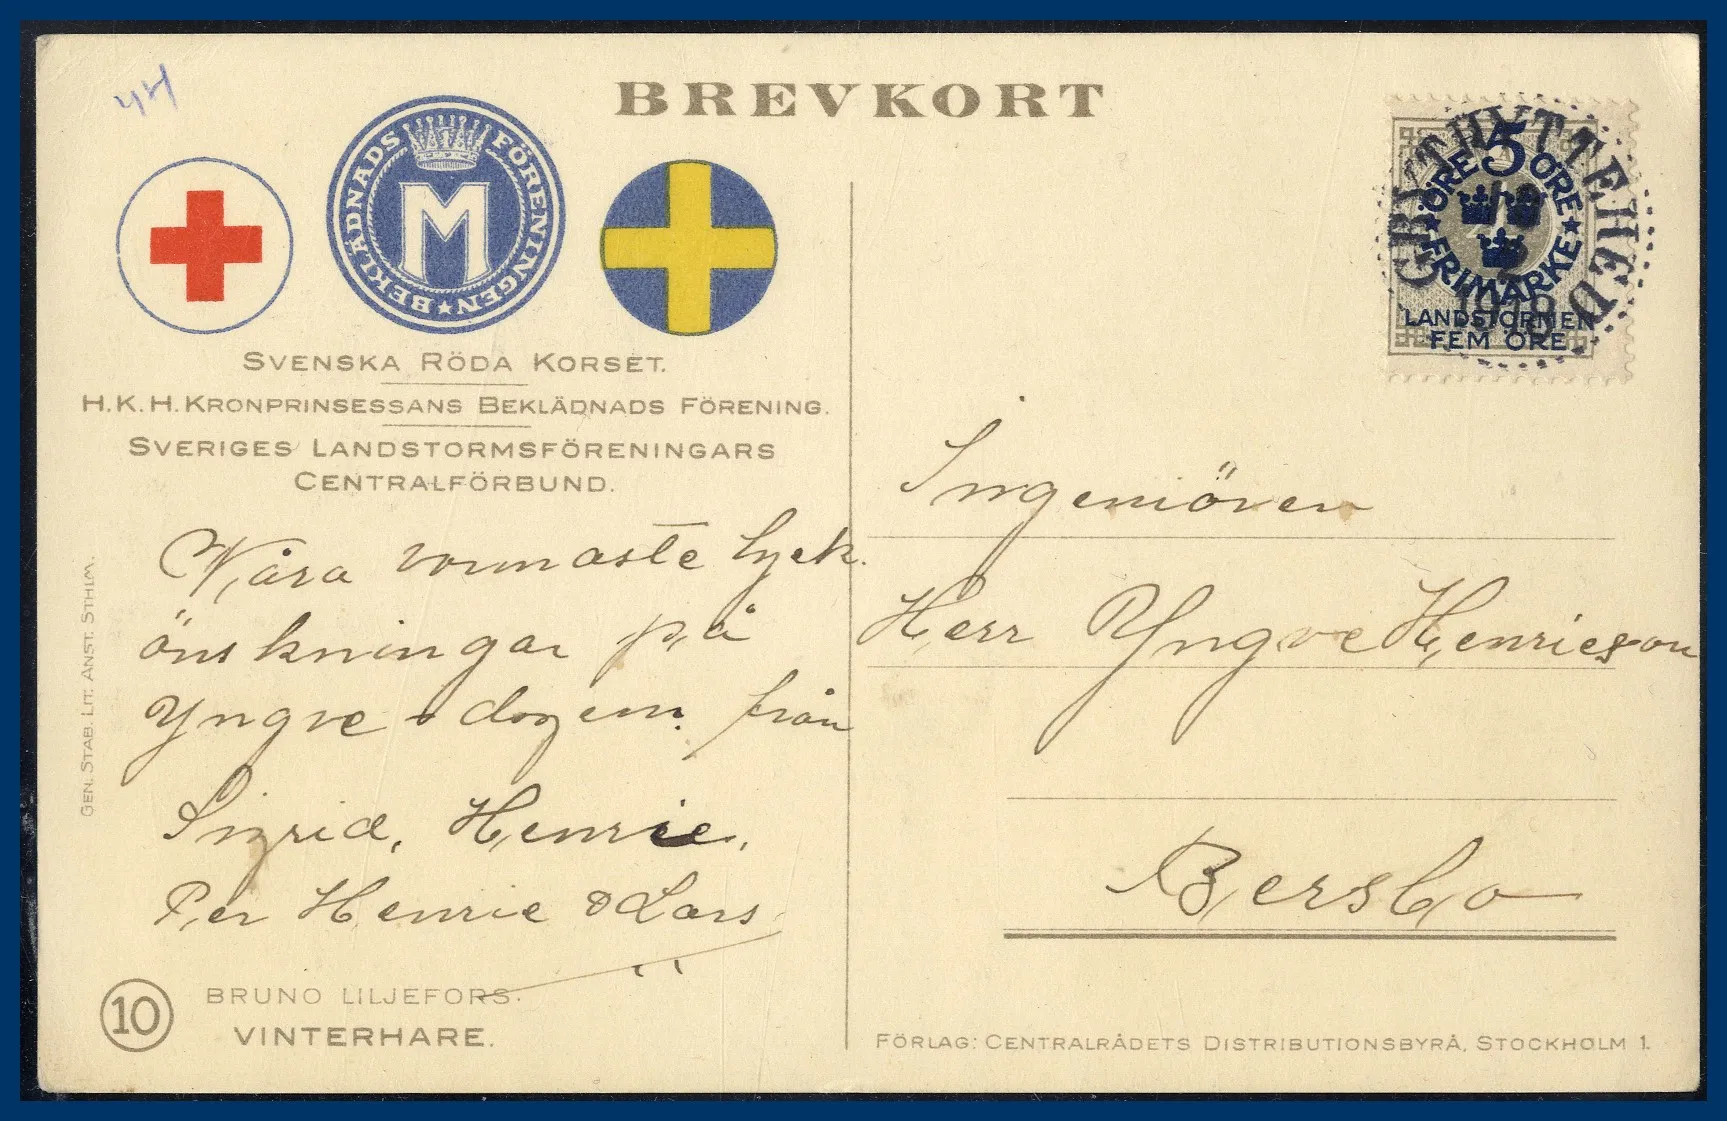 44
BREVKORT
BEKLÄDNADS FÖRENINGEN
M
SVENSKA RÖDA KORSET.
H.K.H. KRONPRINSESSANS BEKLÄDNADS FÖRENING.
SVERIGES LANDSTORMSFÖRENINGARS
CENTRALFÖRBUND.
Våra varmaste lyck.
önskningar på
Yngve-dagen från
Sigrid, Henrie,
Per Henrie & Lars
GEN. STAB. LIT. ANST. STHLM.
10
BRUNO LILJEFORS.
VINTERHARE.
GRYTHYTTEHED
1918
ÖRE 5 ÖRE
FRIMÄRKE
LANDSTORMEN
FEM ÖRE
Ingeniören
Herr Yngve Henricson
Bersbo
FÖRLAG: CENTRALRÅDETS DISTRIBUTIONSBYRÅ, STOCKHOLM 1.